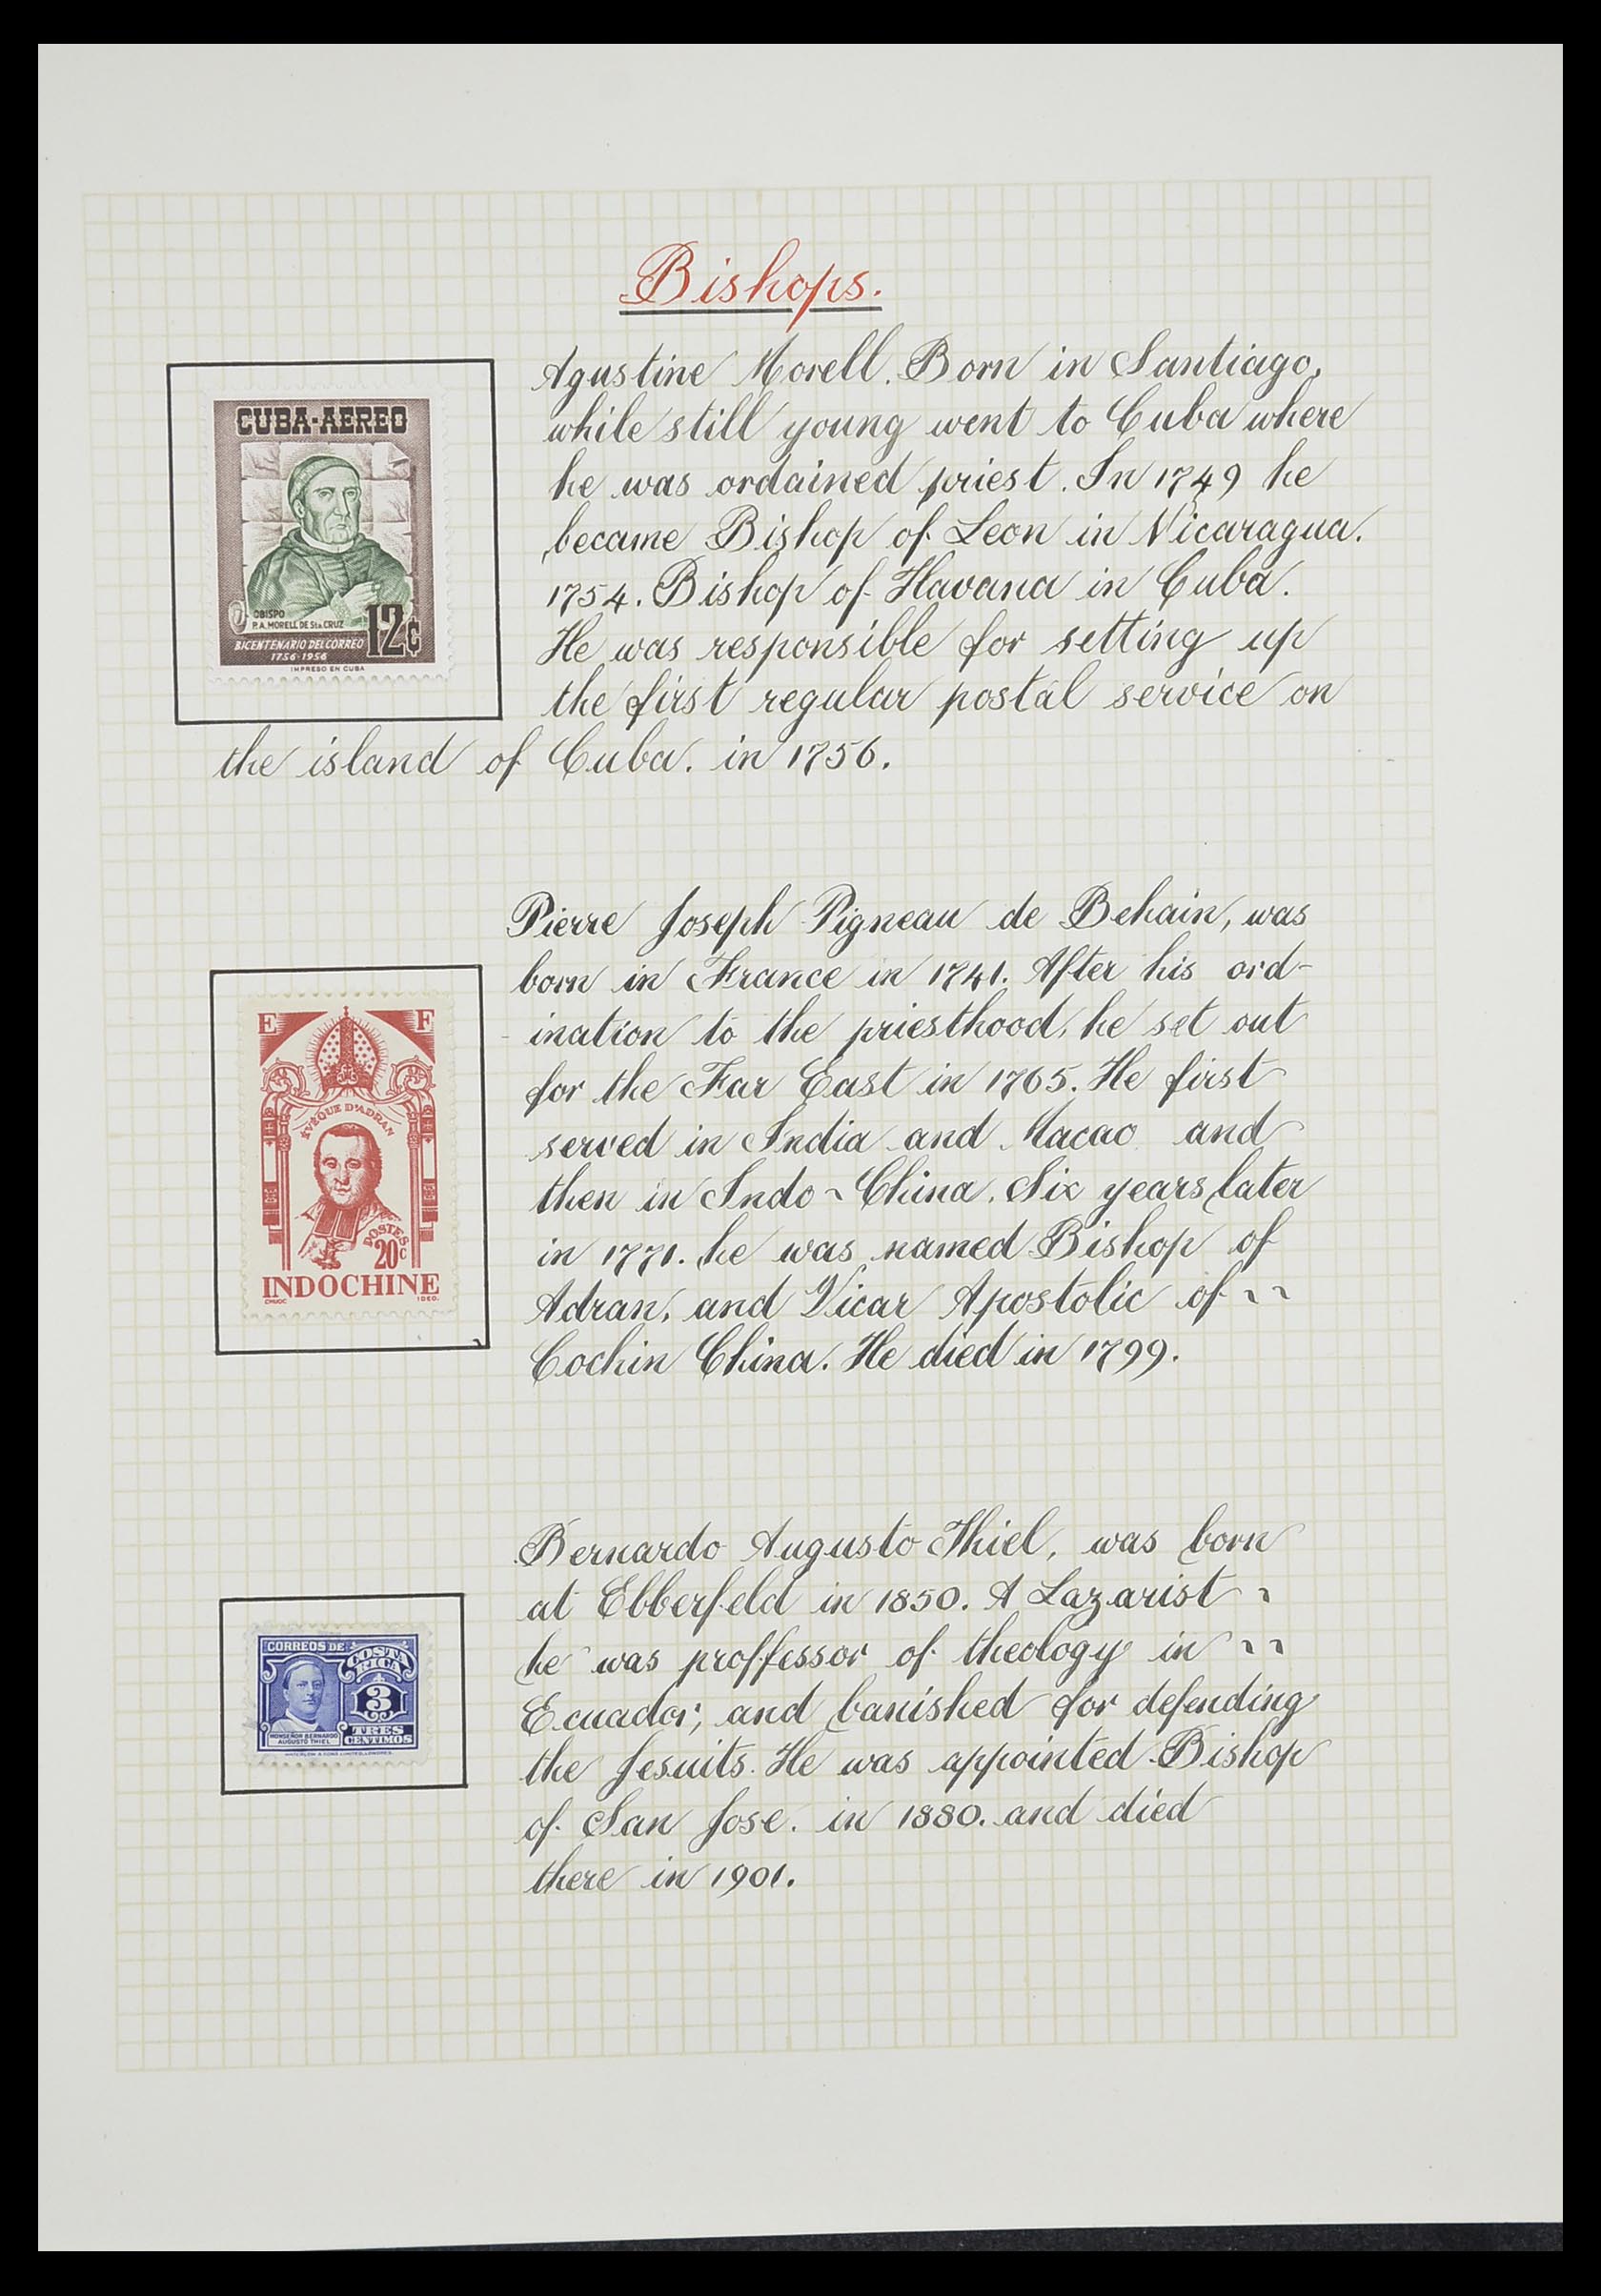 Bishops.
CUBA-AEREO
OBISPO
P.A. MORELL DE Sta. CRUZ
12¢
BICENTENARIO DEL CORREO
1756-1956
IMPRESO EN CUBA
Agustine Morell. Born in Santiago,
while still young went to Cuba where
he was ordained priest. In 1749 he
became Bishop of Leon in Nicaragua.
1754. Bishop of Havana in Cuba.
He was responsible for setting up
the first regular postal service on
the island of Cuba. in 1756.
E F
ÉVÊQUE D'ADRAN
POSTES
20c
INDOCHINE
CHUOC IDEO.
Pierre Joseph Pigneau de Behain, was
born in France in 1741. After his ord-
ination to the priesthood, he set out
for the Far East in 1765. He first
served in India and Macao and
then in Indo-China. Six years later
in 1771. he was named Bishop of
Adran, and Vicar Apostolic of ~~
Cochin China. He died in 1799.
CORREOS DE
COSTA
RICA
3
TRES
CENTIMOS
MONSEÑOR BERNARDO
AUGUSTO THIEL
WATERLOW & SONS LIMITED, LONDRES.
Bernardo Augusto Thiel, was born
at Ebberfeld in 1850. A Lazarist ~
he was proffessor of theology in ~~
Ecuador, and banished for defending
the Jesuits. He was appointed Bishop
of San Jose. in 1880. and died
there in 1901.